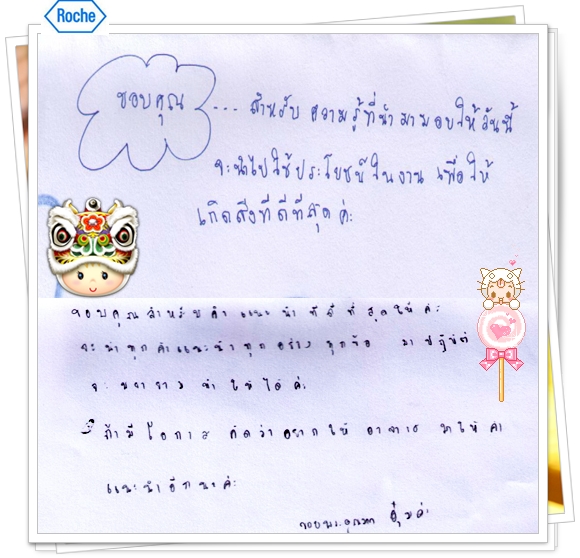 Roche
ขอบคุณ ... สำหรับ ความรู้ที่นำมามอบให้วันนี้
จะนำไปใช้ประโยชน์ในงาน เพื่อให้
เกิดสิ่งที่ดีที่สุดค่ะ
ขอบคุณสำหรับคำแนะนำที่ดีที่สุดให้ค่ะ
จะนำทุกคำแนะนำทุกอย่าง ทุกข้อ มาปฏิบัติ
จะพยายามนำให้ได้ค่ะ
ถ้ามีโอกาส คิดว่าอยากให้อาจารย์มาให้คำ
แนะนำอีกนะค่ะ
อุ๋มค่ะ